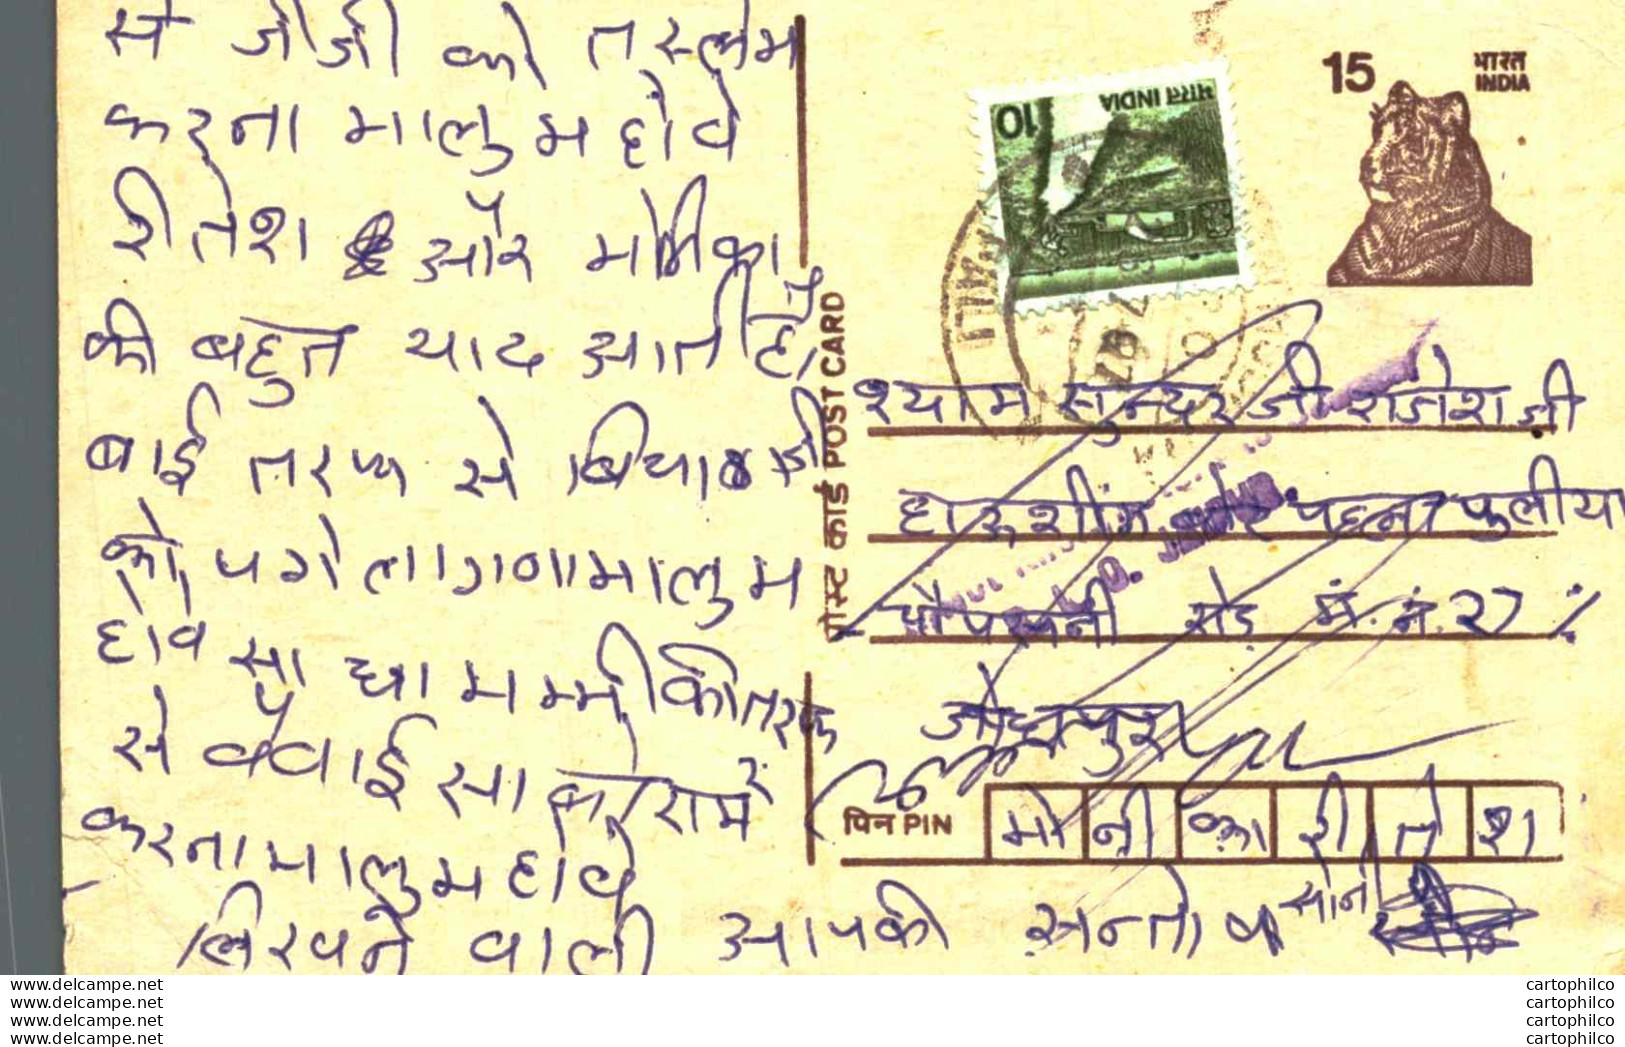 से जीजी को तस्लीम
करना मालुम होवे
रीतेश और मोनीका
की बहुत याद आती है,
बाई तरफ से बिया जी
को पगे लागणा मालुम
होवे सा धा मम्मी की तरफ
से कंवाई सा को राम
करना मालुम होवे
लिखने वाली आपकी सन्तोष सोनी
10 भारत INDIA
15 भारत INDIA
पोस्ट कार्ड POST CARD
श्याम सुन्दर जी राजेश जी
हाऊशींग बोर्ड पहला पुलीया
चौपासनी रोड़ म. नं. 27
जोधपुर
पिन PIN मोनीका रीतेश
www.delcampe.net
www.delcampe.net
www.delcampe.net
www.delcampe.net
cartophilco
cartophilco
cartophilco
cartophilco